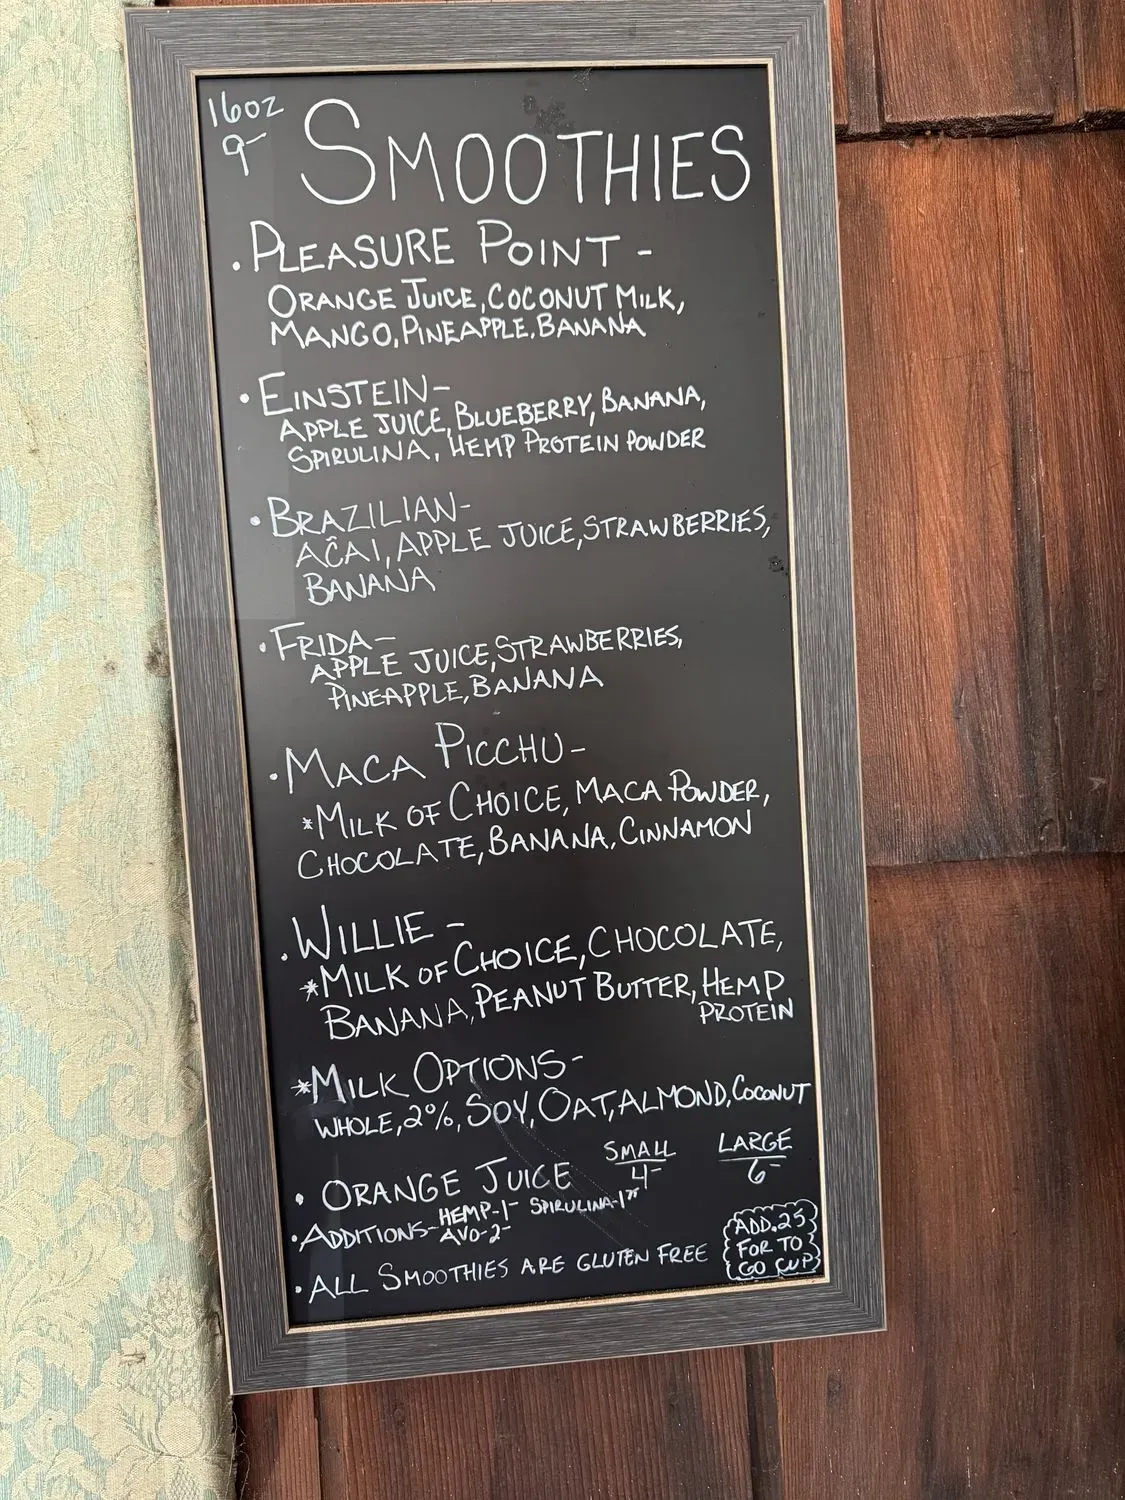 16oz
9-
SMOOTHIES
• PLEASURE POINT -
ORANGE JUICE, COCONUT MILK,
MANGO, PINEAPPLE, BANANA
• EINSTEIN-
APPLE JUICE, BLUEBERRY, BANANA,
SPIRULINA, HEMP PROTEIN POWDER
• BRAZILIAN-
AĈAI, APPLE JUICE, STRAWBERRIES,
BANANA
• FRIDA-
APPLE JUICE, STRAWBERRIES,
PINEAPPLE, BANANA
• MACA PICCHU-
*MILK OF CHOICE, MACA POWDER,
CHOCOLATE, BANANA, CINNAMON
• WILLIE -
*MILK OF CHOICE, CHOCOLATE,
BANANA, PEANUT BUTTER, HEMP
PROTEIN
*MILK OPTIONS-
WHOLE, 2%, SOY, OAT, ALMOND, COCONUT
• ORANGE JUICE SMALL 4- LARGE 6-
• ADDITIONS- HEMP-1- SPIRULINA-1
AVO-2-
• ALL SMOOTHIES ARE GLUTEN FREE
ADD .25
FOR TO
GO CUP